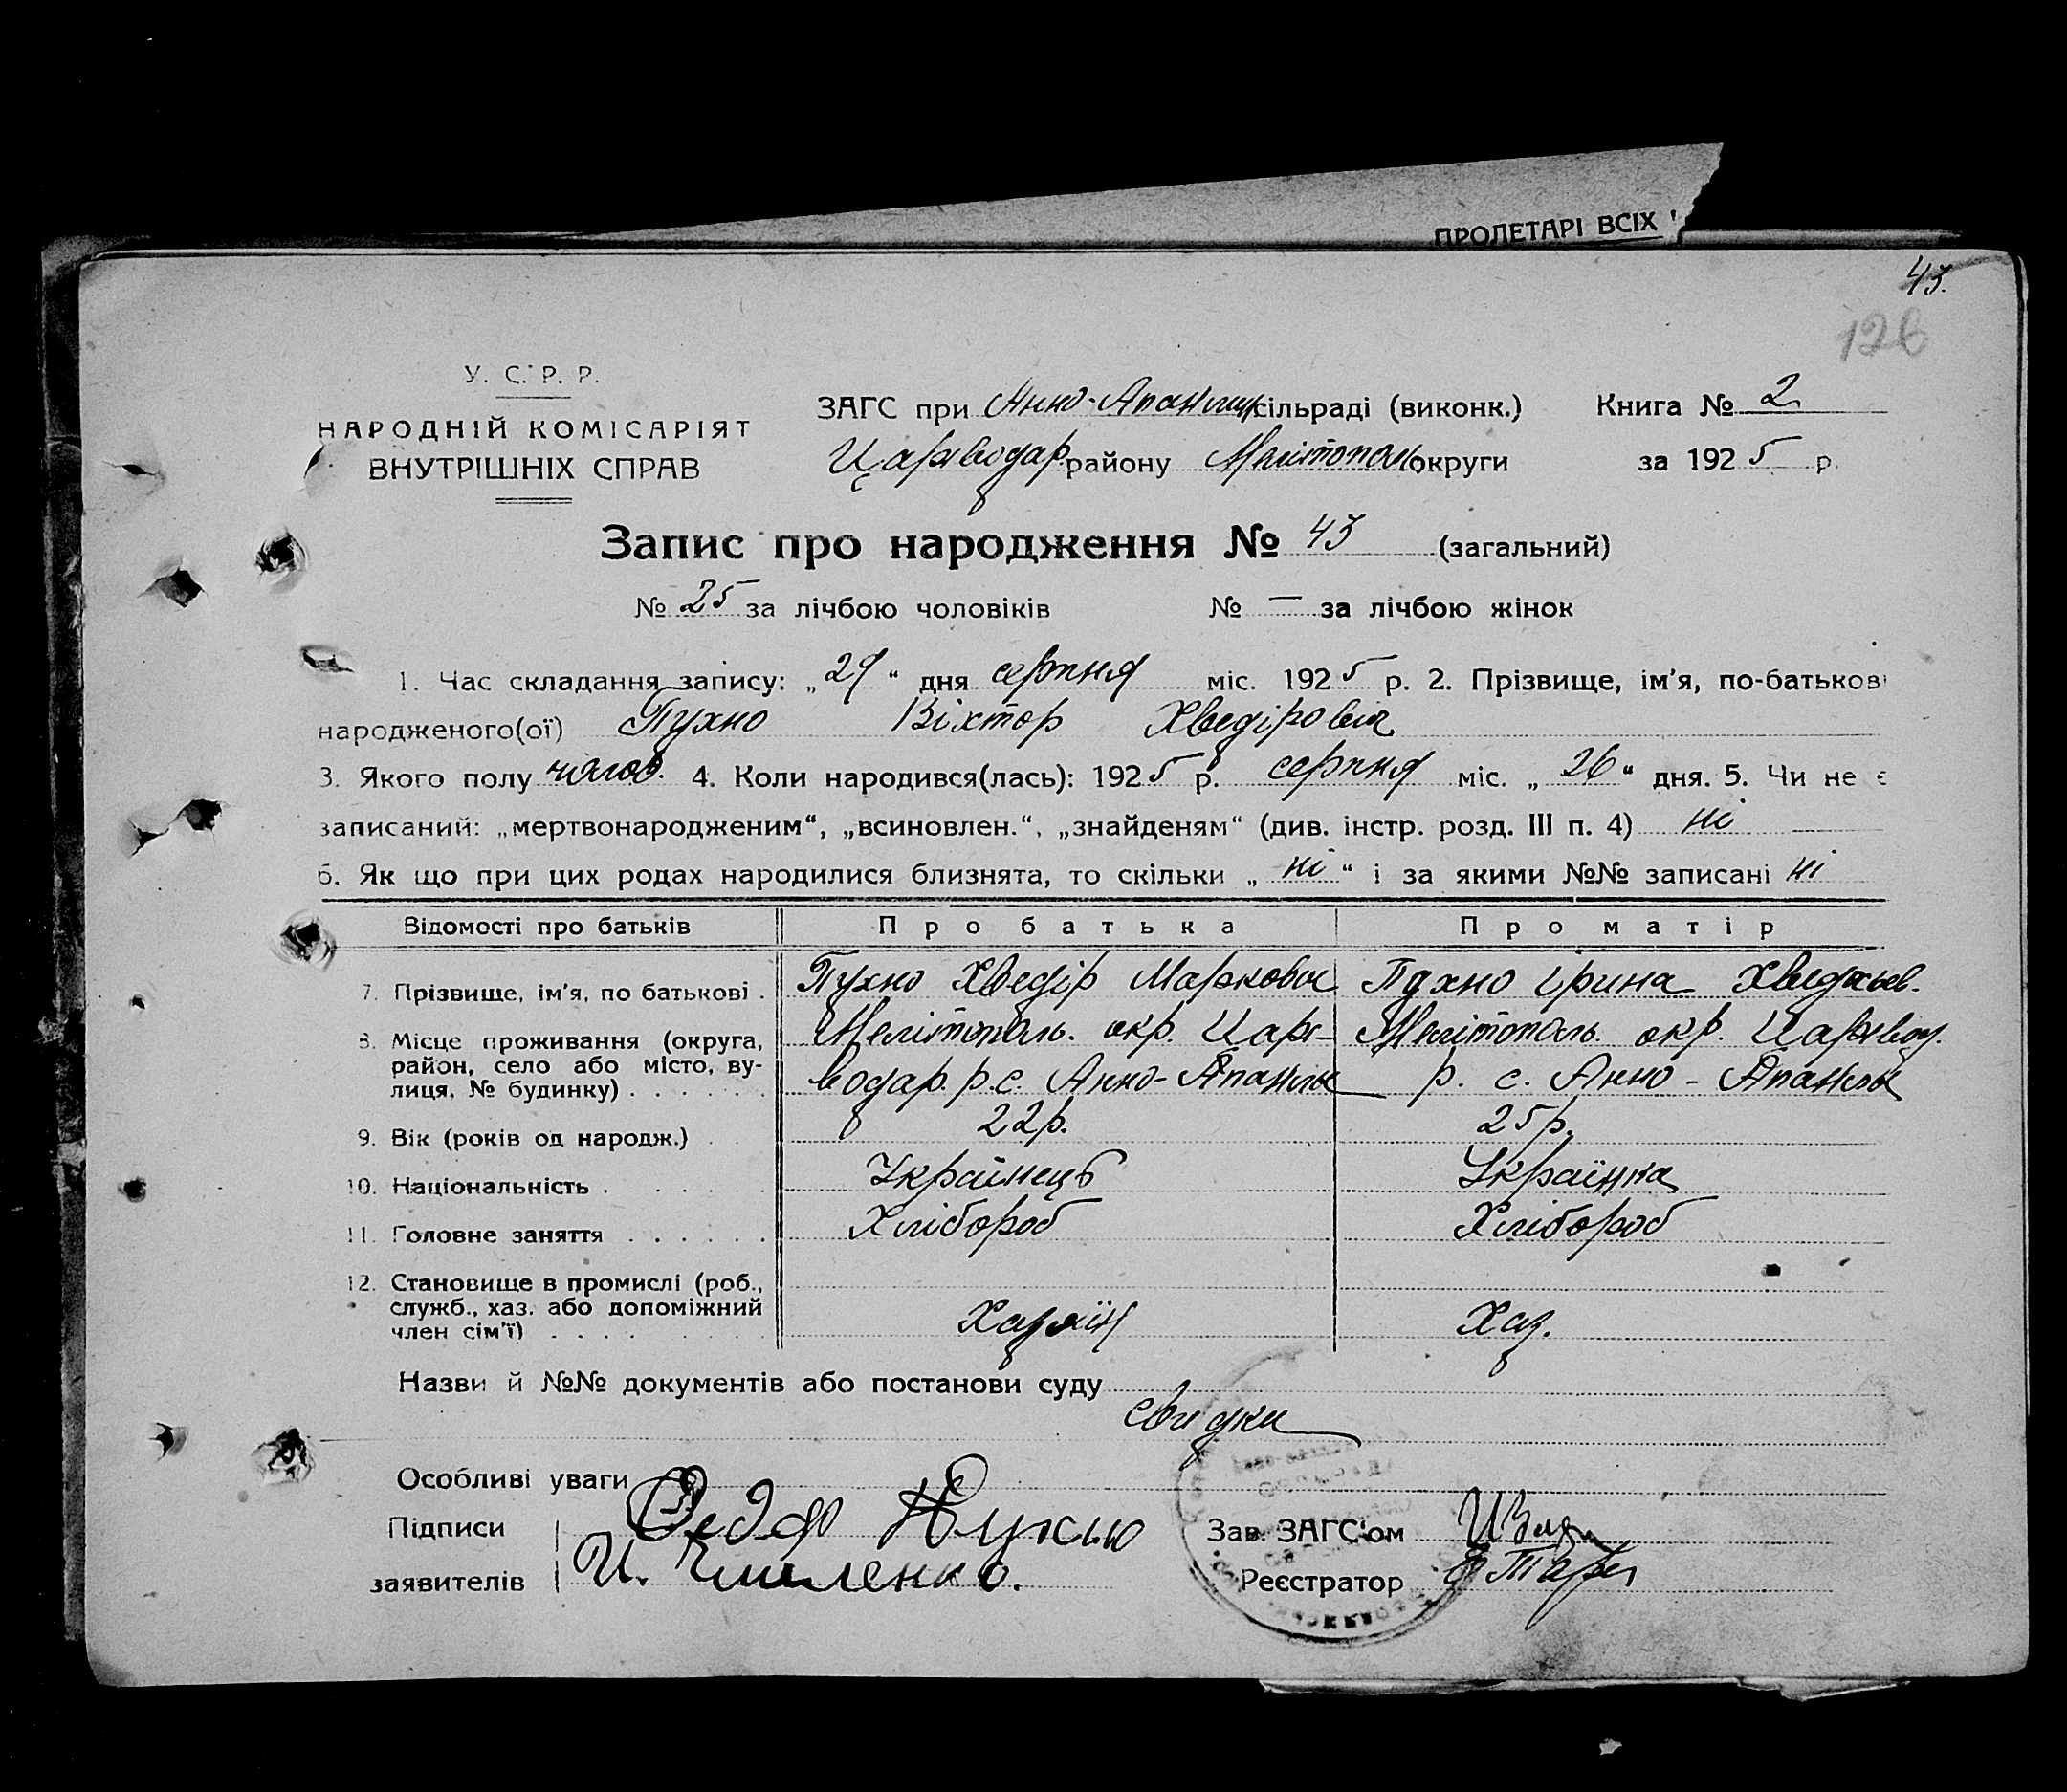 ПРОЛЕТАРІ ВСІХ
43.
126
У. С. Р. Р.
НАРОДНІЙ КОМІСАРІЯТ
ВНУТРІШНІХ СПРАВ
ЗАГС при Анно-Апанлин сільраді (виконк.) Книга № 2
Цареводар. району Мелітополь округи за 1925 р.
Запис про народження № 43 (загальний)
№ 25 за лічбою чоловіків № — за лічбою жінок
1. Час складання запису: „29“ дня серпня міс. 1925 р. 2. Прізвище, ім'я, по-батькові
народженого(ої) Пухно Віхтор Хведірович
3. Якого полу чолов. 4. Коли народився(лась): 1925 р. серпня міс. „26“ дня. 5. Чи не є
записаний: „мертвонародженим“, „всиновлен.“, „знайденям“ (див. інстр. розд. III п. 4) ні
6. Як що при цих родах народилися близнята, то скільки „ні“ і за якими №№ записані ні
Відомості про батьків Про батька Про матір
7. Прізвище, ім'я, по батькові . Пухно Хведір Маркович Пухно Ірина Хведьов.
8. Місце проживання (округа, район, село або місто, вулиця, № будинку) . . . . . . Мелітополь. окр. Царе- Мелітополь. окр. Царевод.
водар. р. с. Анно-Апанли р. с. Анно-Апанли
9. Вік (років од народж.) . 22 р. 25 р.
10. Національність . . . . . Українець Українка
11. Головне заняття . . . . . . Хлібороб Хлібороб
12. Становище в промислі (роб., служб., хаз. або допоміжний член сім'ї) . . . . Хазяїн Хаз.
Назви й №№ документів або постанови суду
свидки
Особливі уваги
Підписи Федор Пухно Зав. ЗАГС'ом
заявителів И. Реєстратор